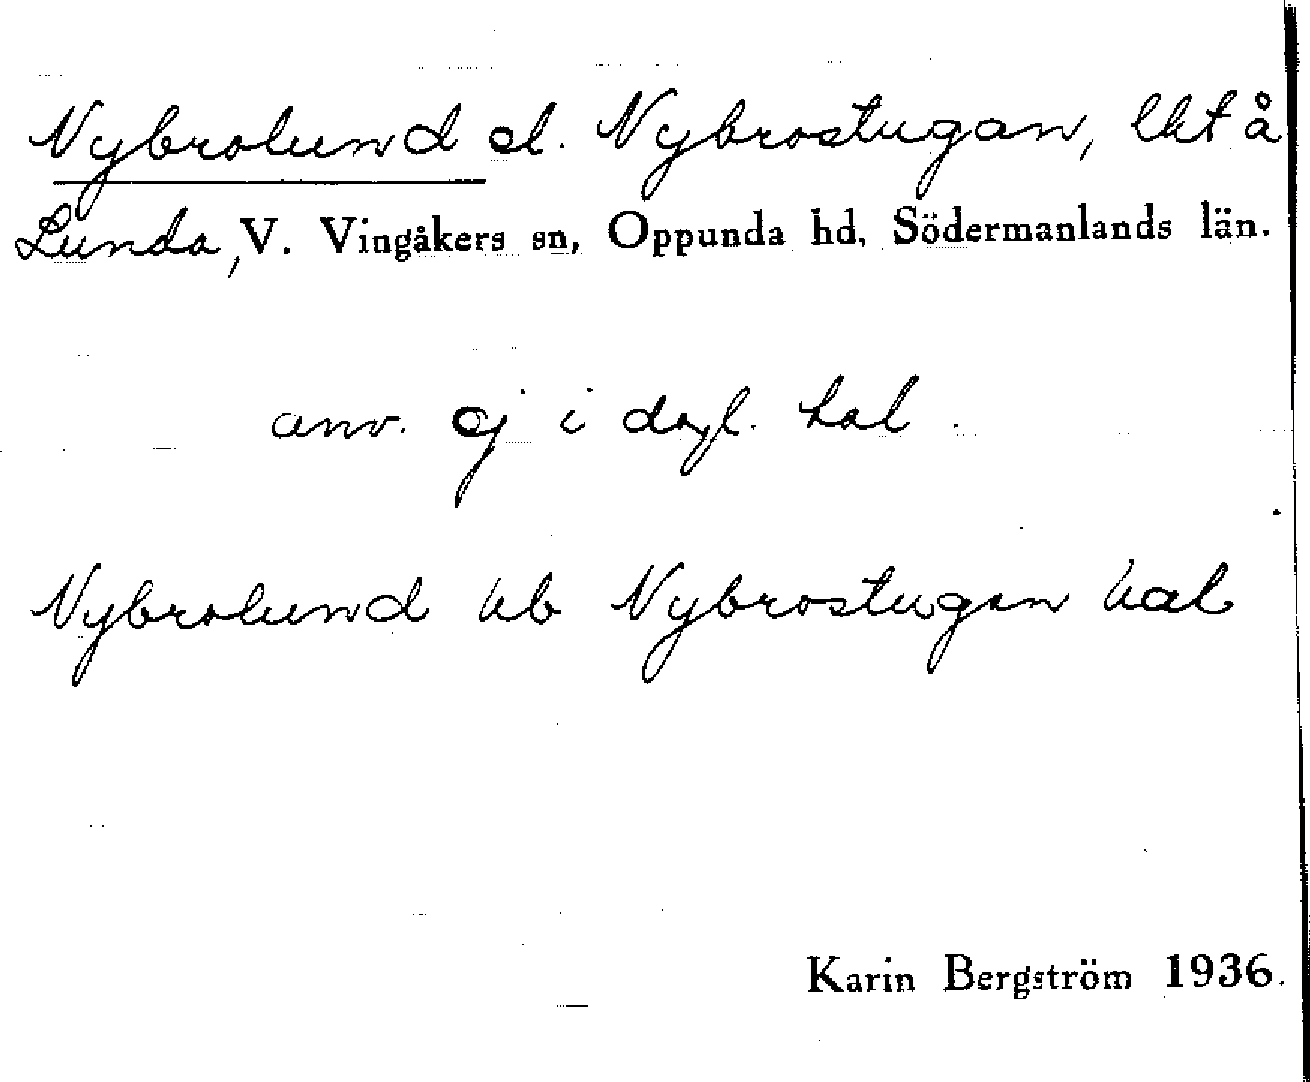 Nybrolund el. Nybrostugan, lht å
Lunda, V. Vingåkers sn, Oppunda hd, Södermanlands län.
anv. ej i dagl. tal.
Nybrolund hb Nybrostugan hal
Karin Bergström 1936.